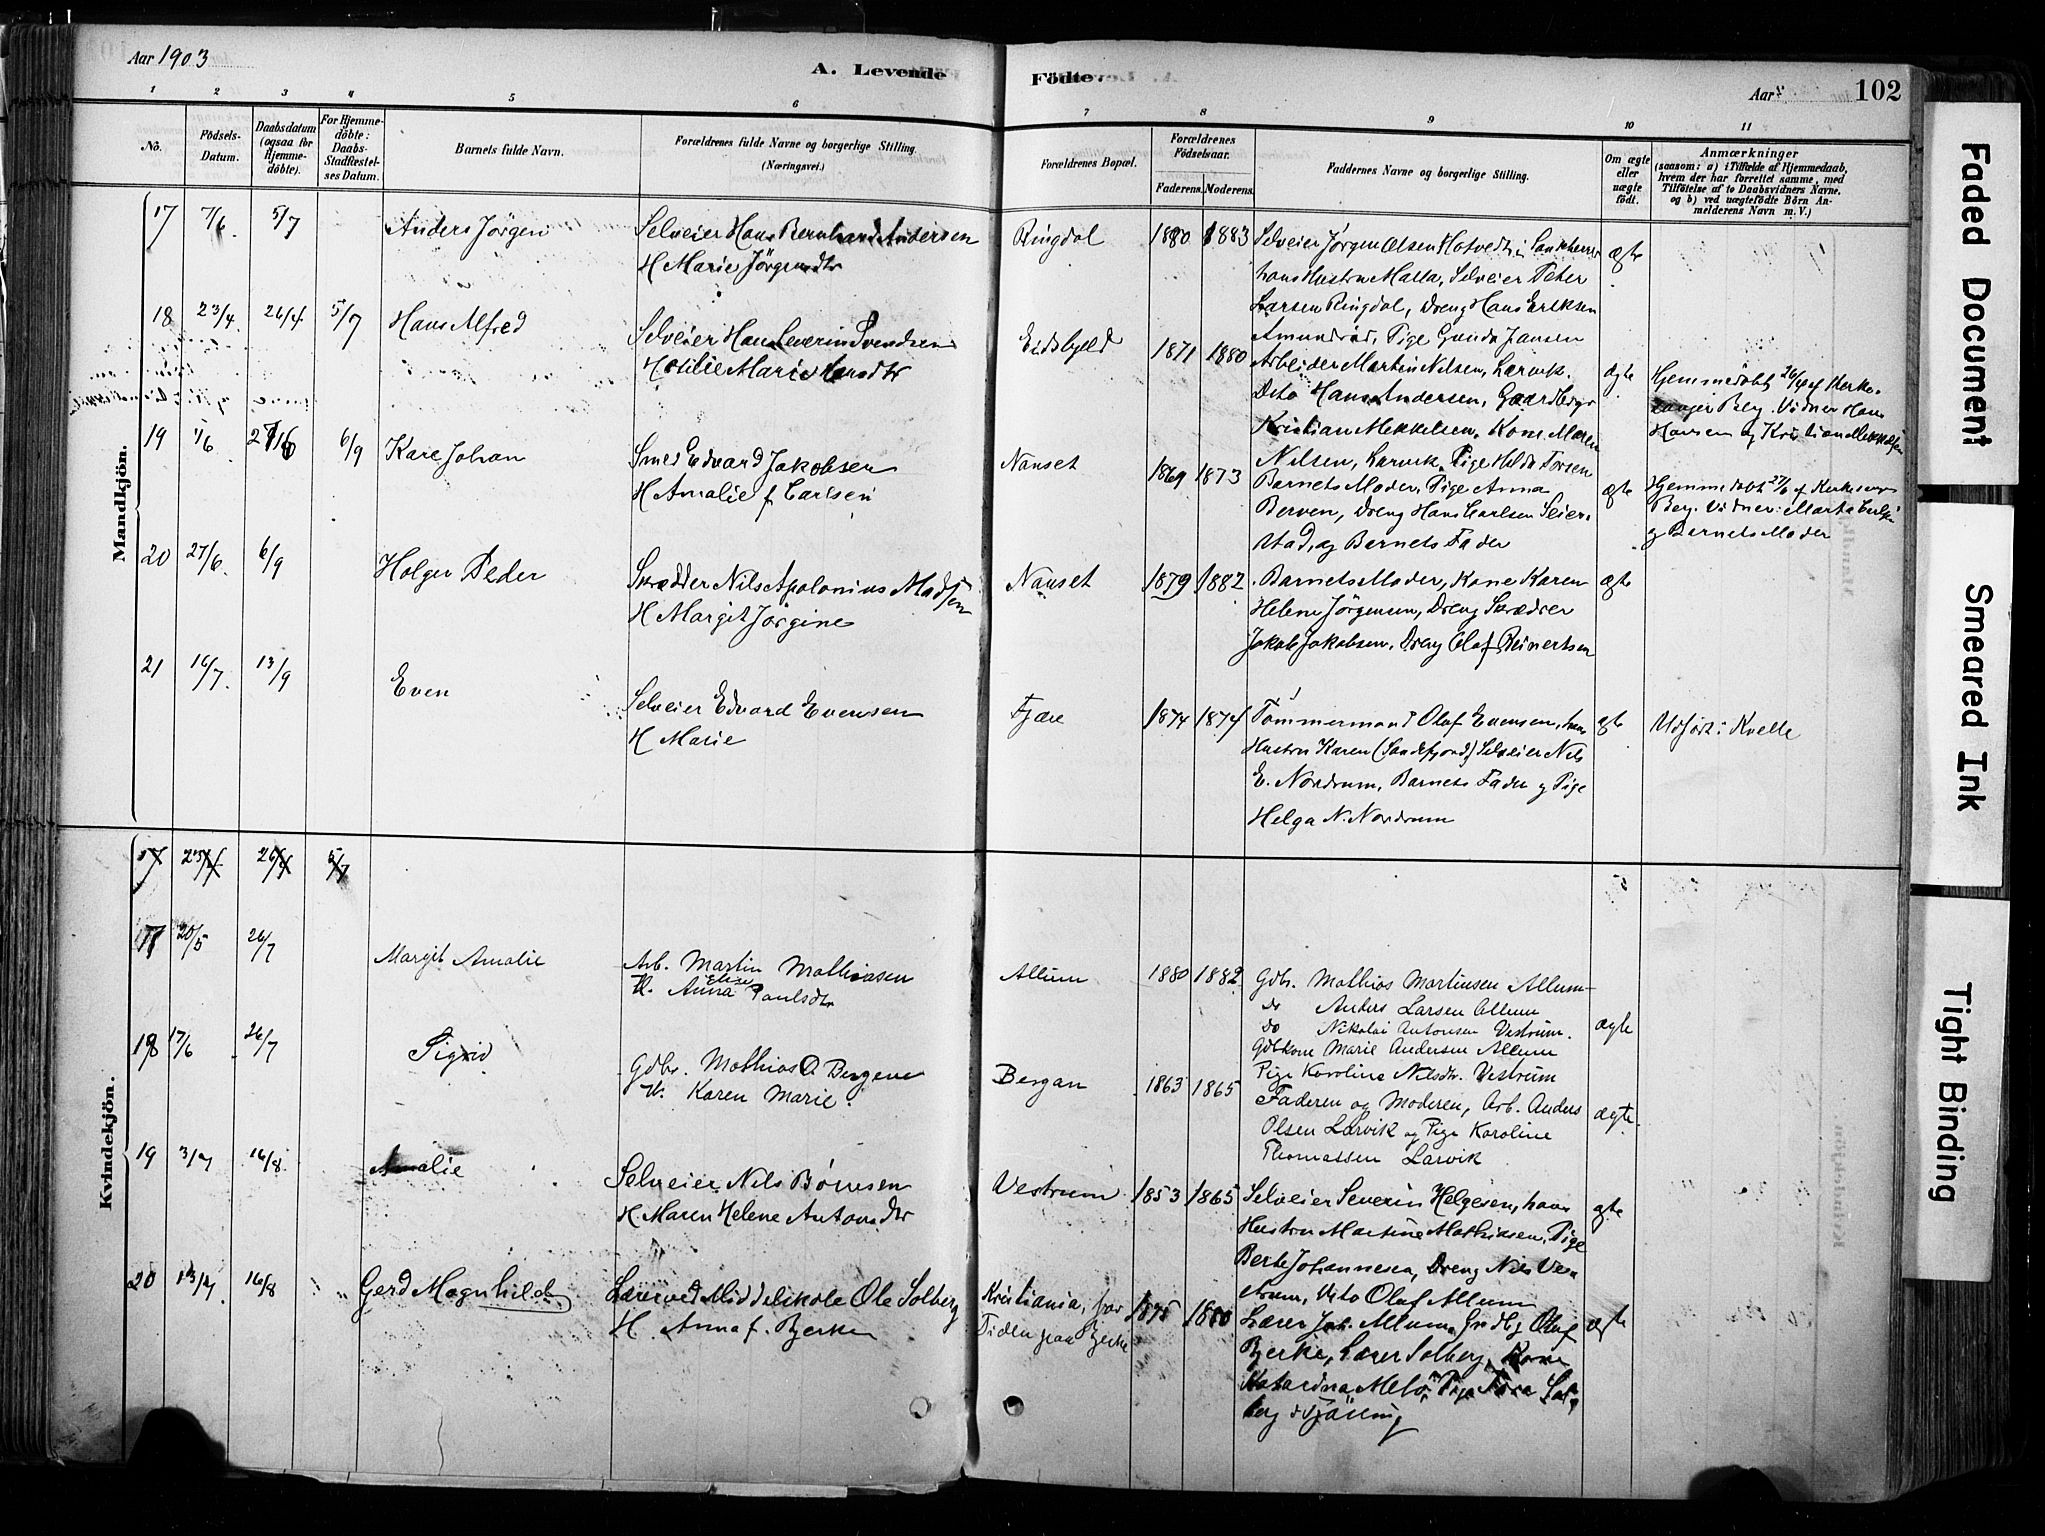 Aar 1903
A. Levende
Födte.
Aar
102
1 2 3 4 5 6 7 8 9 10 11
No.
Födsels-
Datum.
Daabsdatum
(ogsaa for
Hjemme-
döbte).
For Hjemme-
döbte:
Daabs-
Stadfæstel-
ses Datum.
Barnets fulde Navn.
Forældrenes fulde Navne og borgerlige Stilling.
(Næringsvei.)
Forældrenes Bopæl.
Forældrenes
Födselsaar.
Faderens. Moderens.
Faddernes Navne og borgerlige Stilling.
Om ægte
eller
uægte
födt.
Anmærkninger
(saasom: a) i Tilfælde af Hjemmedaab,
hvem der har forrettet samme, med
Tilföielse af to Daabsvidners Navne,
og b) ved uægtefödte Börn An-
melderens Navn m. V.)
Mandkjön.
17 7/6. 5/7 Anders Jörgen
Selveier Hans Bernhard Andersen
H Marie Jörgensdtr
Ringdal 1880 1883
Selveier Jörgen Olsen Hotvedt i Sandeherred
hans Hustru Malla, Selveier Peter
Larsen Ringdal, Dreng Hans Eriksen
Amundröd, Pige Gunda Jansen
ægte
18 23/4. 26/4 5/7 Hans Alfred
Selveier Hans Severin Svendsen
H Otilie Marie Hansdtr
Eidsbyeld 1871 1880
Arbeider Martin Nilsen, Larvik.
Dito Hans Andersen, Gaardbrgr
Kristian Mekkelsen, Kone Maren
Nilsen, Larvik, Pige Hilda Torsen
ægte
Hjemmedöbt 26/4 af Kirke-
sanger Berg. Vidner Hans
Hansen og Kristian Mekkelsen
19 1/6 27/6 6/9 Kare Johan
Smed Edvard Jakobsen
H Amalie f. Carlsen
Nanset 1869 1873
Barnets Moder, Pige Anna
Berven, Dreng Hans Carlsen Seier-
stad, og Barnets Fader
ægte
Hjemmedöbt 27/6 af Kirkesanger
Berg. Vidner: Marta Carlsen
og Barnets Moder
20 27/6. 6/9 Holger Peder
Skrædder Nils Apolonius Madsen
H Margit Jörgine
Nanset 1879 1882
Barnets Moder, Kone Karen
Helene Jörgensen, Dreng Skrædder
Jakob Jakobsen, Dreng Olaf Reinertsen
ægte
21 16/7. 13/9 Even
Selveier Edvard Evensen
H Marie
Fjære 1874 1874
Tömmermand Olaf Evensen, hans
Hustru Karen (Sandefjord) Selveier Nils
E. Nordrum, Barnets Fader og Pige
Helga N. Nordrum
ægte
Udført i Kvelle
Kvindekjön.
17 23/4 26/4 5/7
17 20/5 26/7 Margit Amalie
Arb. Martin Mathiasen
H. Anna Elise Paulsdtr
Allum 1880 1882
Gdbr. Mathias Martinsen Allum
do Anders Larsen Allum
do Nikolai Antonsen Vestrum.
Gdbkone Marie Andersen Allum
Pige Karoline Nilsdtr. Vestrum
ægte
18 17/6 26/7 Sigrid
Gdbr. Mathias O Bergene
H. Karen Marie.
Bergan 1863 1865
Faderen og Moderen, Arb. Anders
Olsen Larvik og Pige Karoline
Thomassen Larvik
ægte.
19 3/7 16/8. Amalie
Selveier Nils Börresen
H. Maren Helene Antonsdtr
Vestrum 1853 1865
Selveier Severin Helgesen, hans
Hustru Martine Mathisen, Pige
Berte Johannesen, Dreng Nils Ve-
strum, Dito Olaf Allum
ægte
20 13/7. 16/8 Gerd Magnhild
Lærer ved Middelskole Ole Solberg
H. Anna f. Bjerke
Kristiania, for
Tiden paa Bjerke
1875 1880
Lærer Joh. Allum, Grdbg Olaf
Bjerke, Lærer Solberg, Kone
Katarina Melö, Pige Tora Sol-
berg i Tjölling
ægte
Faded Document
Smeared Ink
Tight Binding